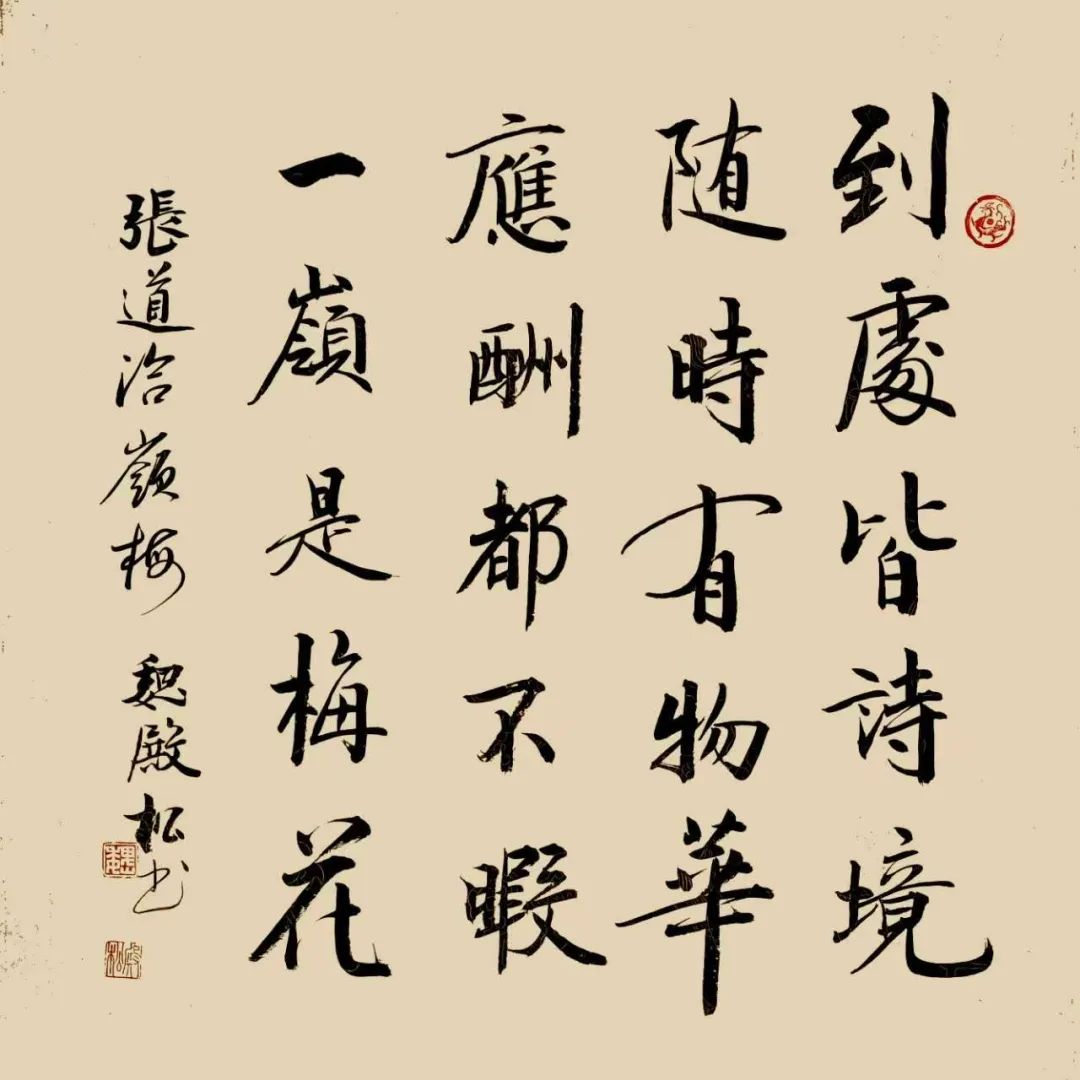 到處皆詩境
随時有物華
應酬都不暇
一嶺是梅花
張道洽嶺梅 魏殿松书